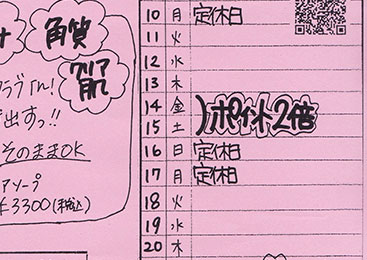 角質
クリア
肌
出すっ!!
そのままOK
アソープ
¥3300(税込)
10 月 定休日
11 火
12 水
13 木
14 金
15 土
ポイント2倍
16 日 定休日
17 月 定休日
18 火
19 水
20 木